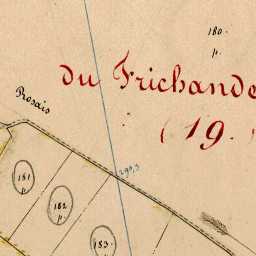 180.
p.
du Frichande
Rosais
(19.)
290,3
181
p.
182
p.
183.